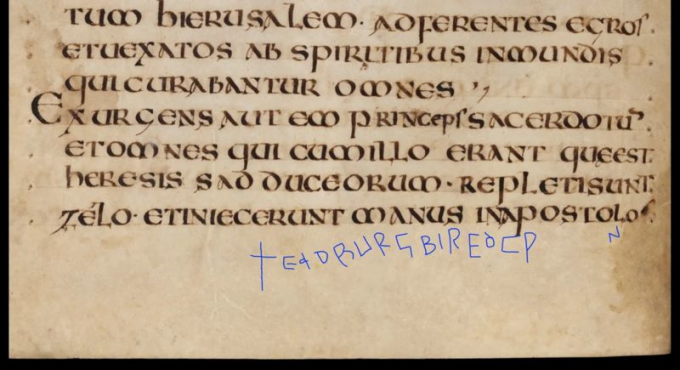 tum hierusalem· adferentes egros·
etuexatos ab spiritibus inmundis
quicurabantur omnes
Exurgens autem princeps sacerdotū·
etomnes qui cumillo erant queest
heresis sadduceorum· repletisunt
zelo· etiniecerunt manus inapostolos·
†EADBURGBIREDCP N